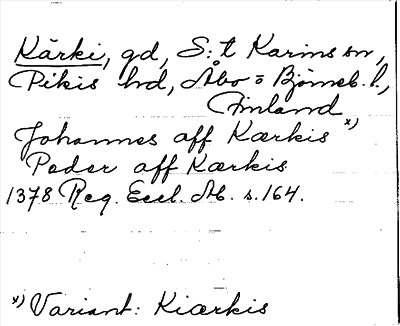 Kärki, gd, S:t Karins sn,
Pikis hd, Åbo o Björneb. l.,
Finland
Johannes aff Kærkis x)
Peder aff Kærkis
1378 Reg. Eccl. Ab. s. 164.
x) Variant: Kiærkis